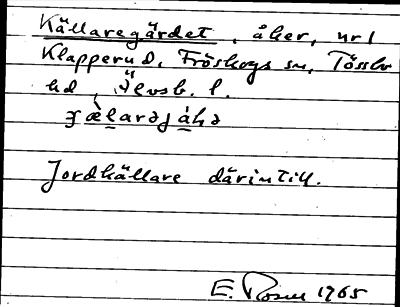 Källaregärdet, åker, nr 1
Klapperud, Fröskogs sn, Tössbo
hd, Älvsb. l.
Jordkällare därintill.
E. Rosén 1965